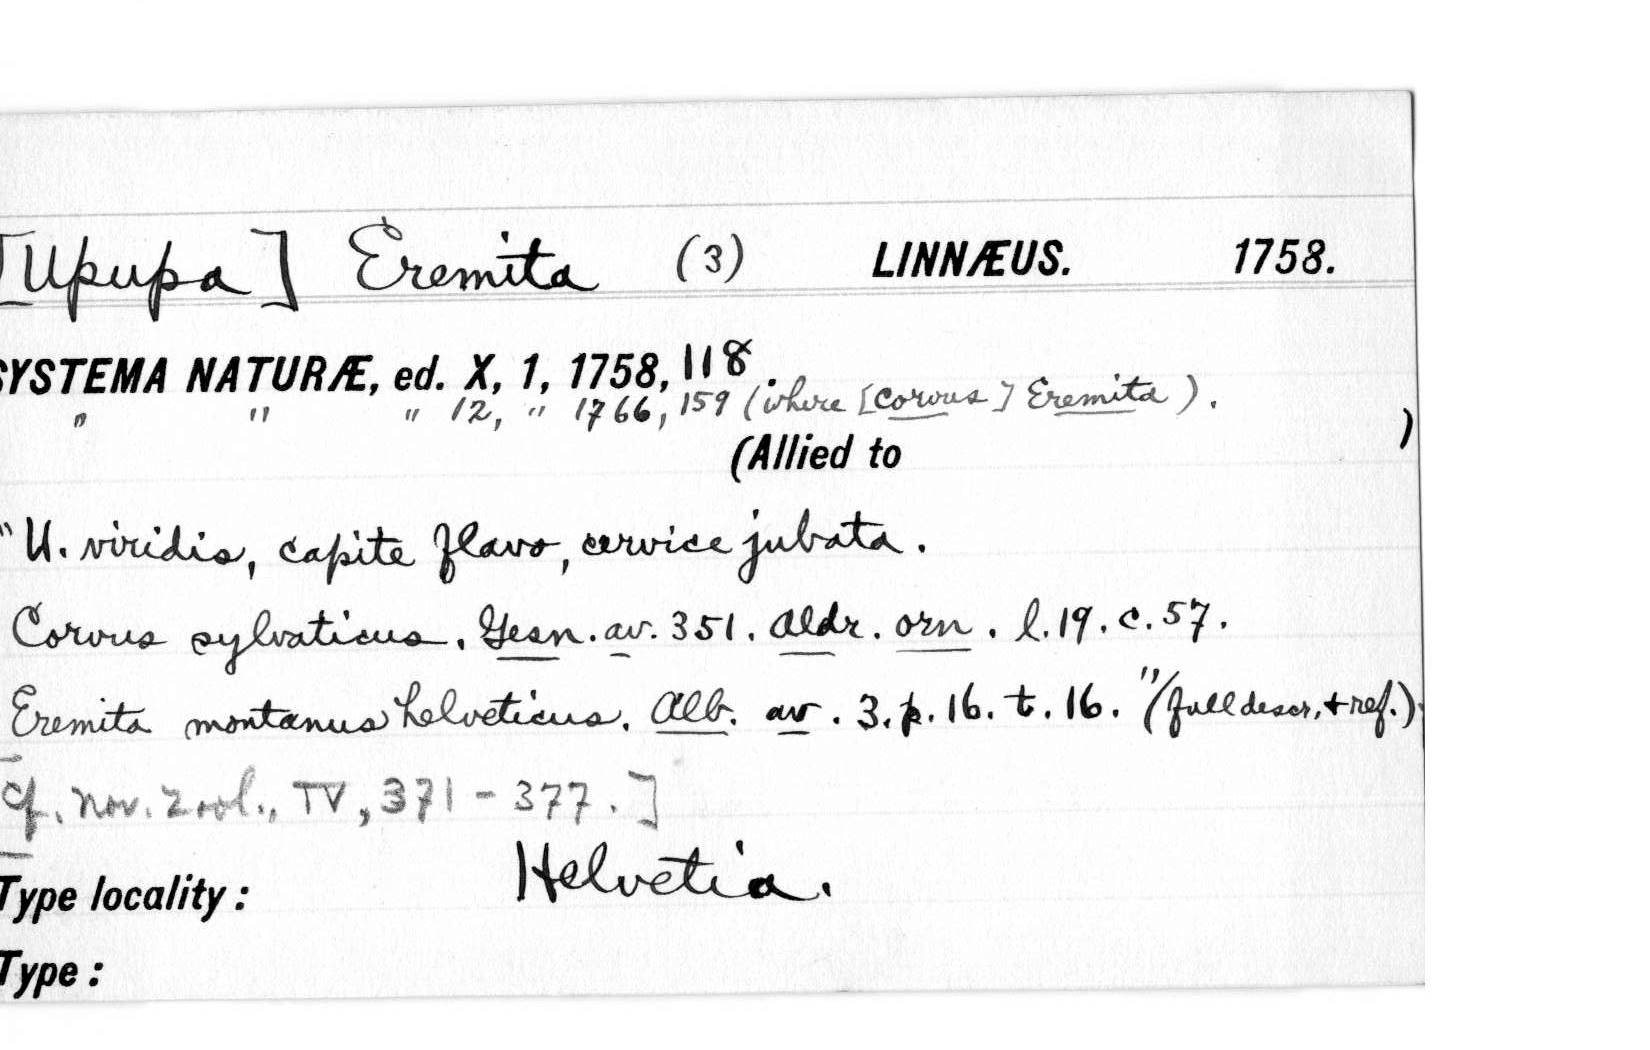 [Upupa] Eremita (3) LINNÆUS. 1758.
SYSTEMA NATURÆ, ed. X, 1, 1758, 118.
" " " 12, " 1766, 159 (where [Corvus] Eremita).
(Allied to )
"U. viridis, capite flavo, cervice jubata.
Corvus sylvaticus. Gesn. av. 351. Aldr. orn. l. 19. c. 57.
Eremita montanus helveticus. Alb. av. 3. p. 16. t. 16." (full descr. + ref.)
[cf. Nov. Zool., IV, 371-377.]
Helvetia.
Type locality:
Type: